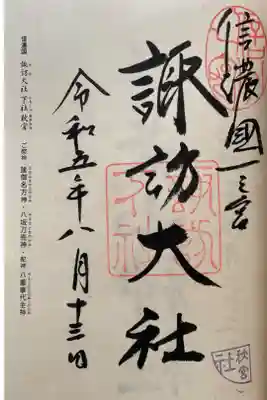 信濃國一之宮
諏訪大社
令和五年八月十三日
信濃国 諏訪大社 下社秋宮 ご祭神 建御名方神・八坂刀売神・配神 八重事代主神
秋宮
社